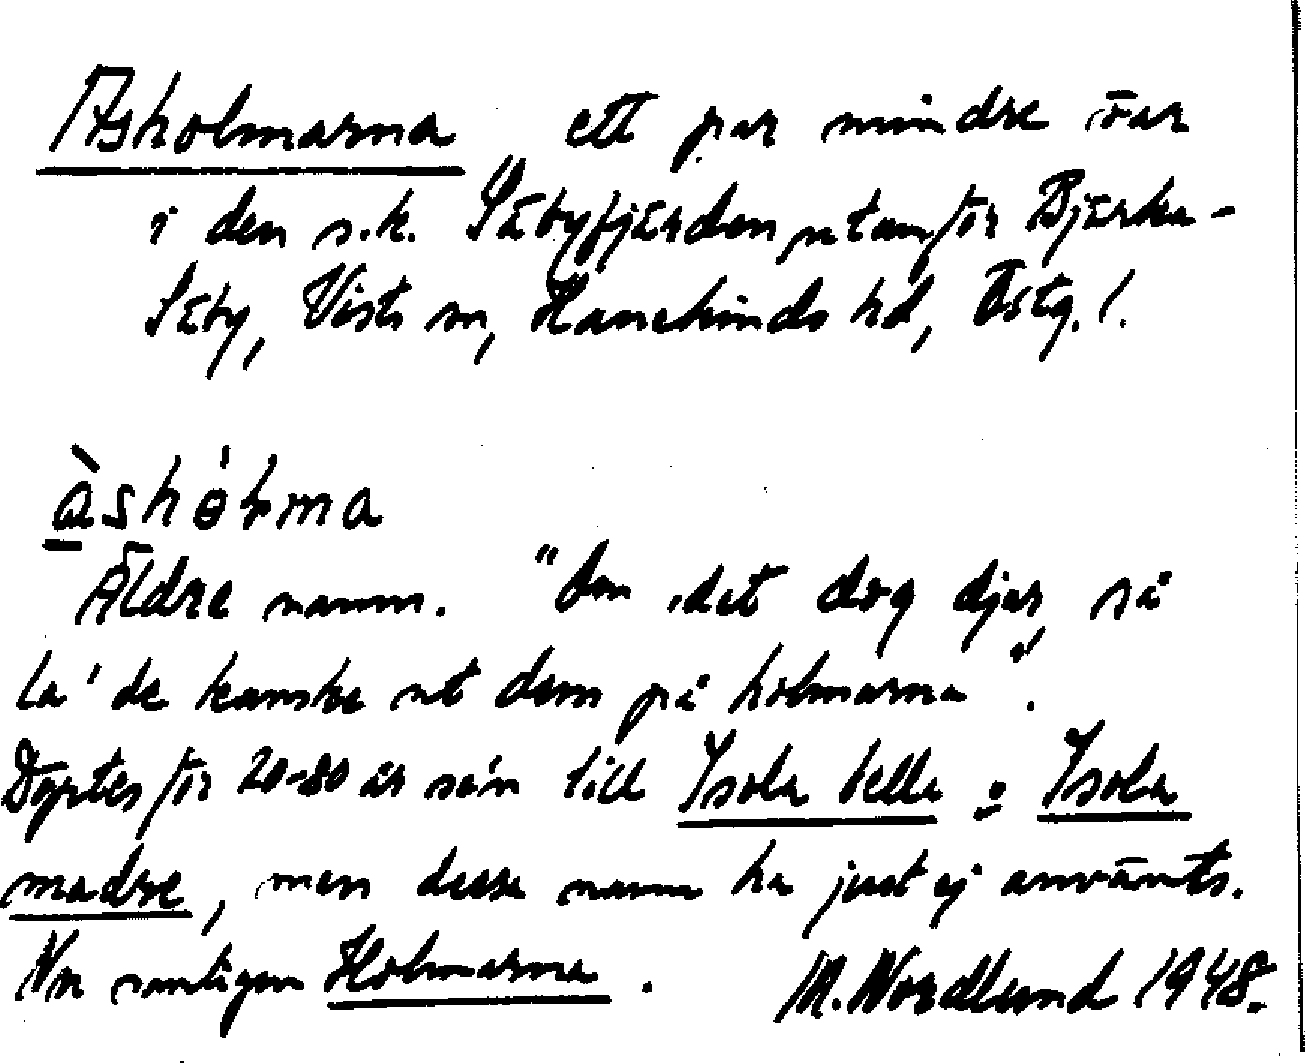 Asholmarna ett par mindre öar
i den s.k. Sätbyfjärden utanför Bjärka-
Säby, Vists sn, Hanekinds hd, Östg. l.
àshóɫma
Äldre namn. "Om det dog djur, så
la' de kanske ut dem på holmarna".
Döptes för 20-30 år se'n till Isola bella o Isola
madre, men dessa namn ha just ej använts.
Nu vanligen Holmarna.
M. Nordlund 1948.